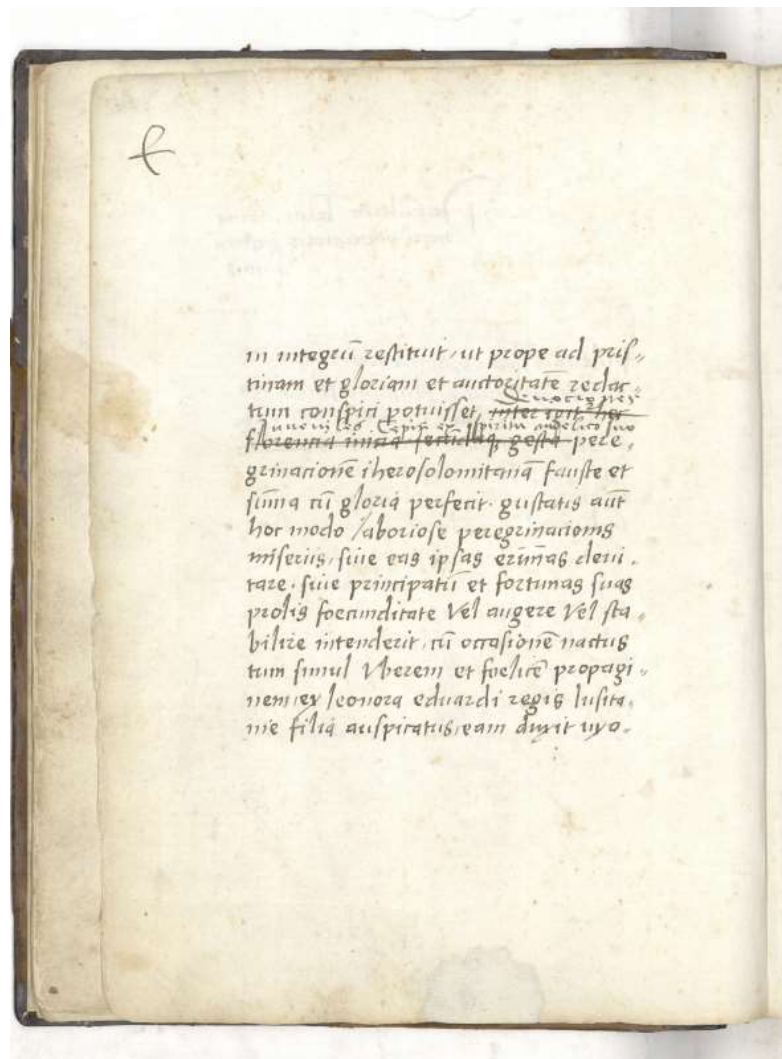 in integrū restituit, ut prope ad pris-
tinam et gloriam et auctoritatē redac-
devocio per
tum conspici potuisset, inter
iuveniles cepit ex spiritu angelico suo
florencia gesta pere-
grinacionē iherosolomitanā fauste et
sūma cū gloria perfecit. gustatis aūt
hoc modo laboriose peregrinacionis
miseriis, sive eas ipsas erūnas devi-
tare, sive principatū et fortunas suas
prolis foecunditate vel augere vel sta-
bilire intenderit, cū occasionē nactus
tum simul Vberem et foelicē propagi-
nem, ex leonora eduardi regis lusita-
nie filia auspicatus, eam duxit uxo-